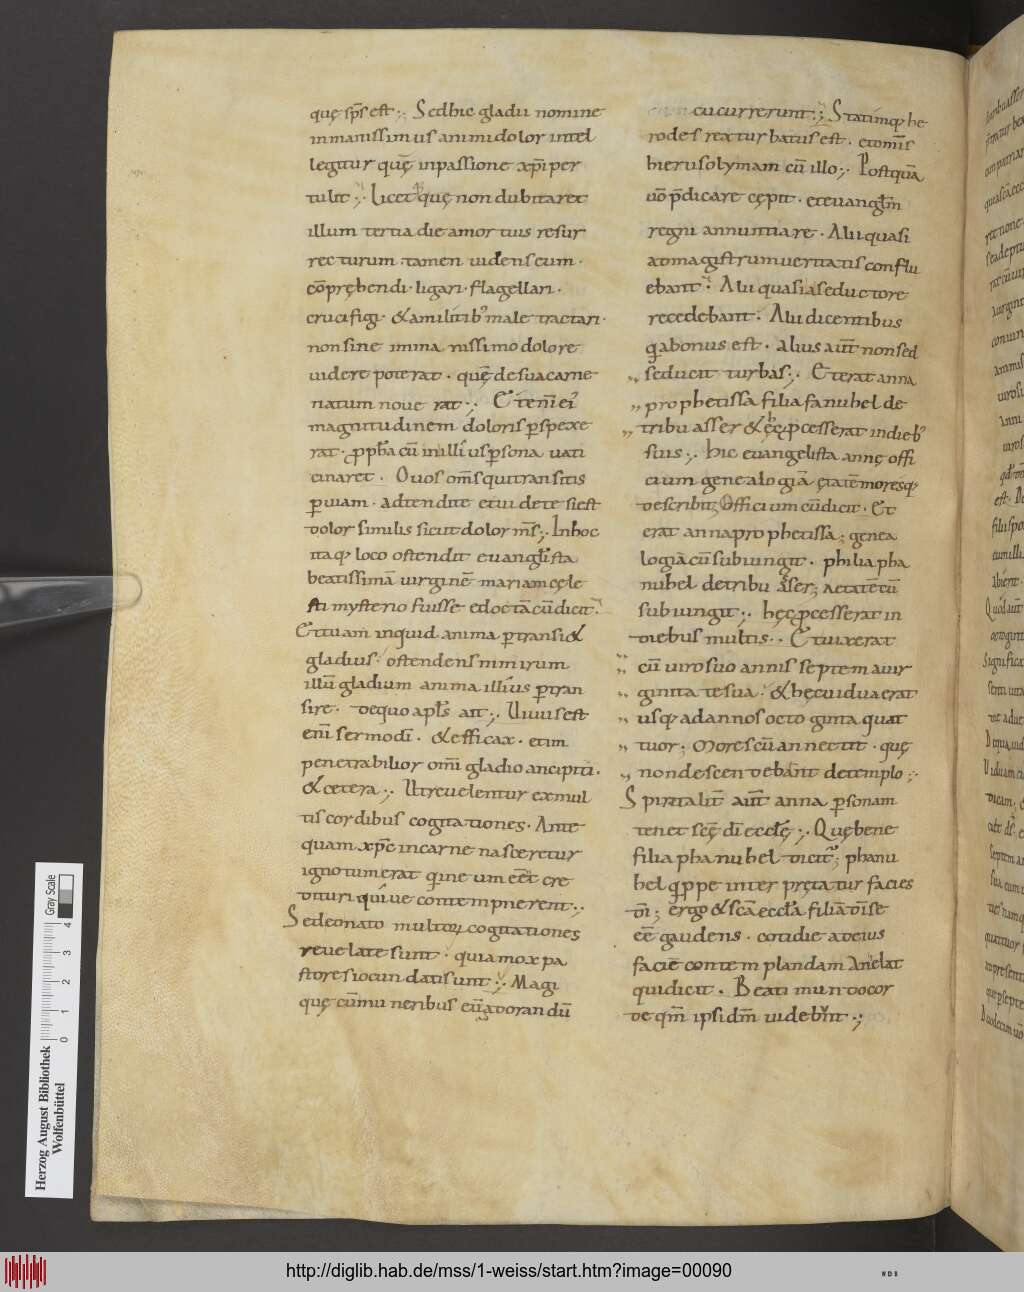 quę sp̄s est ·,· Sed hic gladii nomine
inmanissimus animi dolor intel
legitur quę̄ in passione xp̄i per
tulit ·,· Licet quę non dubitaret
illum tertia die a mortuis resur
recturum · tamen uidens eum ·
cōprę̨hendi · ligari · flagellari ·
crucifigi · & a militib; male tractari ·
non sine inmanissimo dolore
uidere poterat · quę̄ de sua carne
natum nouerat ·,· Etenī ei'
magnitudinem doloris ꝑspexe
rat · ꝓph̄a cū in illius ꝑsona uati
cinaret · O uos om̄s qui transitis
ꝑ uiam · adtendite et uidete si est
dolor similis sicut dolor m̄s ·,· In hoc
itaq; loco ostendit euangl̄ista
beatissimā uirginē mariam cęle
sti mysterio fuisse edoctā cū dicit ·
Et tuam inquid anima ꝑtransi&
gladius · ostendens nimirum
illū gladium anima illius ꝑtran
sire · de quo apl̄s ait ·,· Uiuus est
enī sermo dī · & efficax · etim
penetrabilior om̄i gladio ancipiti ·
& cetera ·,· Ut reuelentur ex mul
tis cordibus cogitationes · Ante
quam xp̄c in carne nasceretur
ignotum erat qui ne um eēt cre
dituri qui ue contempnerent ·,·
Sed eo nato multoꝝ cogitationes
reuelate sunt · quia mox pa
stores iocundati sunt ·,· Magi
quę cū muneribus eū adorandū
cucurrerunt ·,· Statimq; he
rodes rex turbatus est · et om̄is
hierusolymam cū illo ·,· Postquā
uō p̄dicare cępit · et euangl̄m
regni annuntiare · Alii quasi
ad magistrum ueritatis conflu
ebant · Alii quasi a seductore
recedebant · Alii dicentibus
q̇a bonus est · alius aūt non sed
seducit turbas ·,· Et erat anna
prophetissa filia fanuhel de
tribu asser & hęc ꝓcesserat in dieb;
suis ·,· Hic euangelista annę offi
cium genealogiā ętatē moresq;
describit; Officium cū dicit · Et
erat anna prophetissa; genea
logiā cū subiungit · philia pha
nuhel de tribu aser; aetatē cū
subiungit ·,· hęc ꝓcesserat in
diebus multis · · Et uixerat
cū uiro suo annis septem a uir
ginitate sua · & hęc uidua erat
usq; ad annos octoginta quat
tuor; Mores cū annectit · quę
non descendebant de templo ·,·
Spiritalit̄ aūt anna ꝑsonam
tenet scę̄ dī eccl̄ę ·,· Quę bene
filia phanuhel dicit'; phanu
hel q̇ppe interprętatur facies
dī; ergo & scā eccl̄a filiā dī se
eē gaudens · cotidie ad eius
faciē contemplandam anelat
qui dicit · Beati mundo cor
de qm̄ ipsi dm̄ uidebunt ·,·
Herzog August Bibliothek
Wolfenbüttel
Gray Scale
0 1 2 3 4
http://diglib.hab.de/mss/1-weiss/start.htm?image=00090